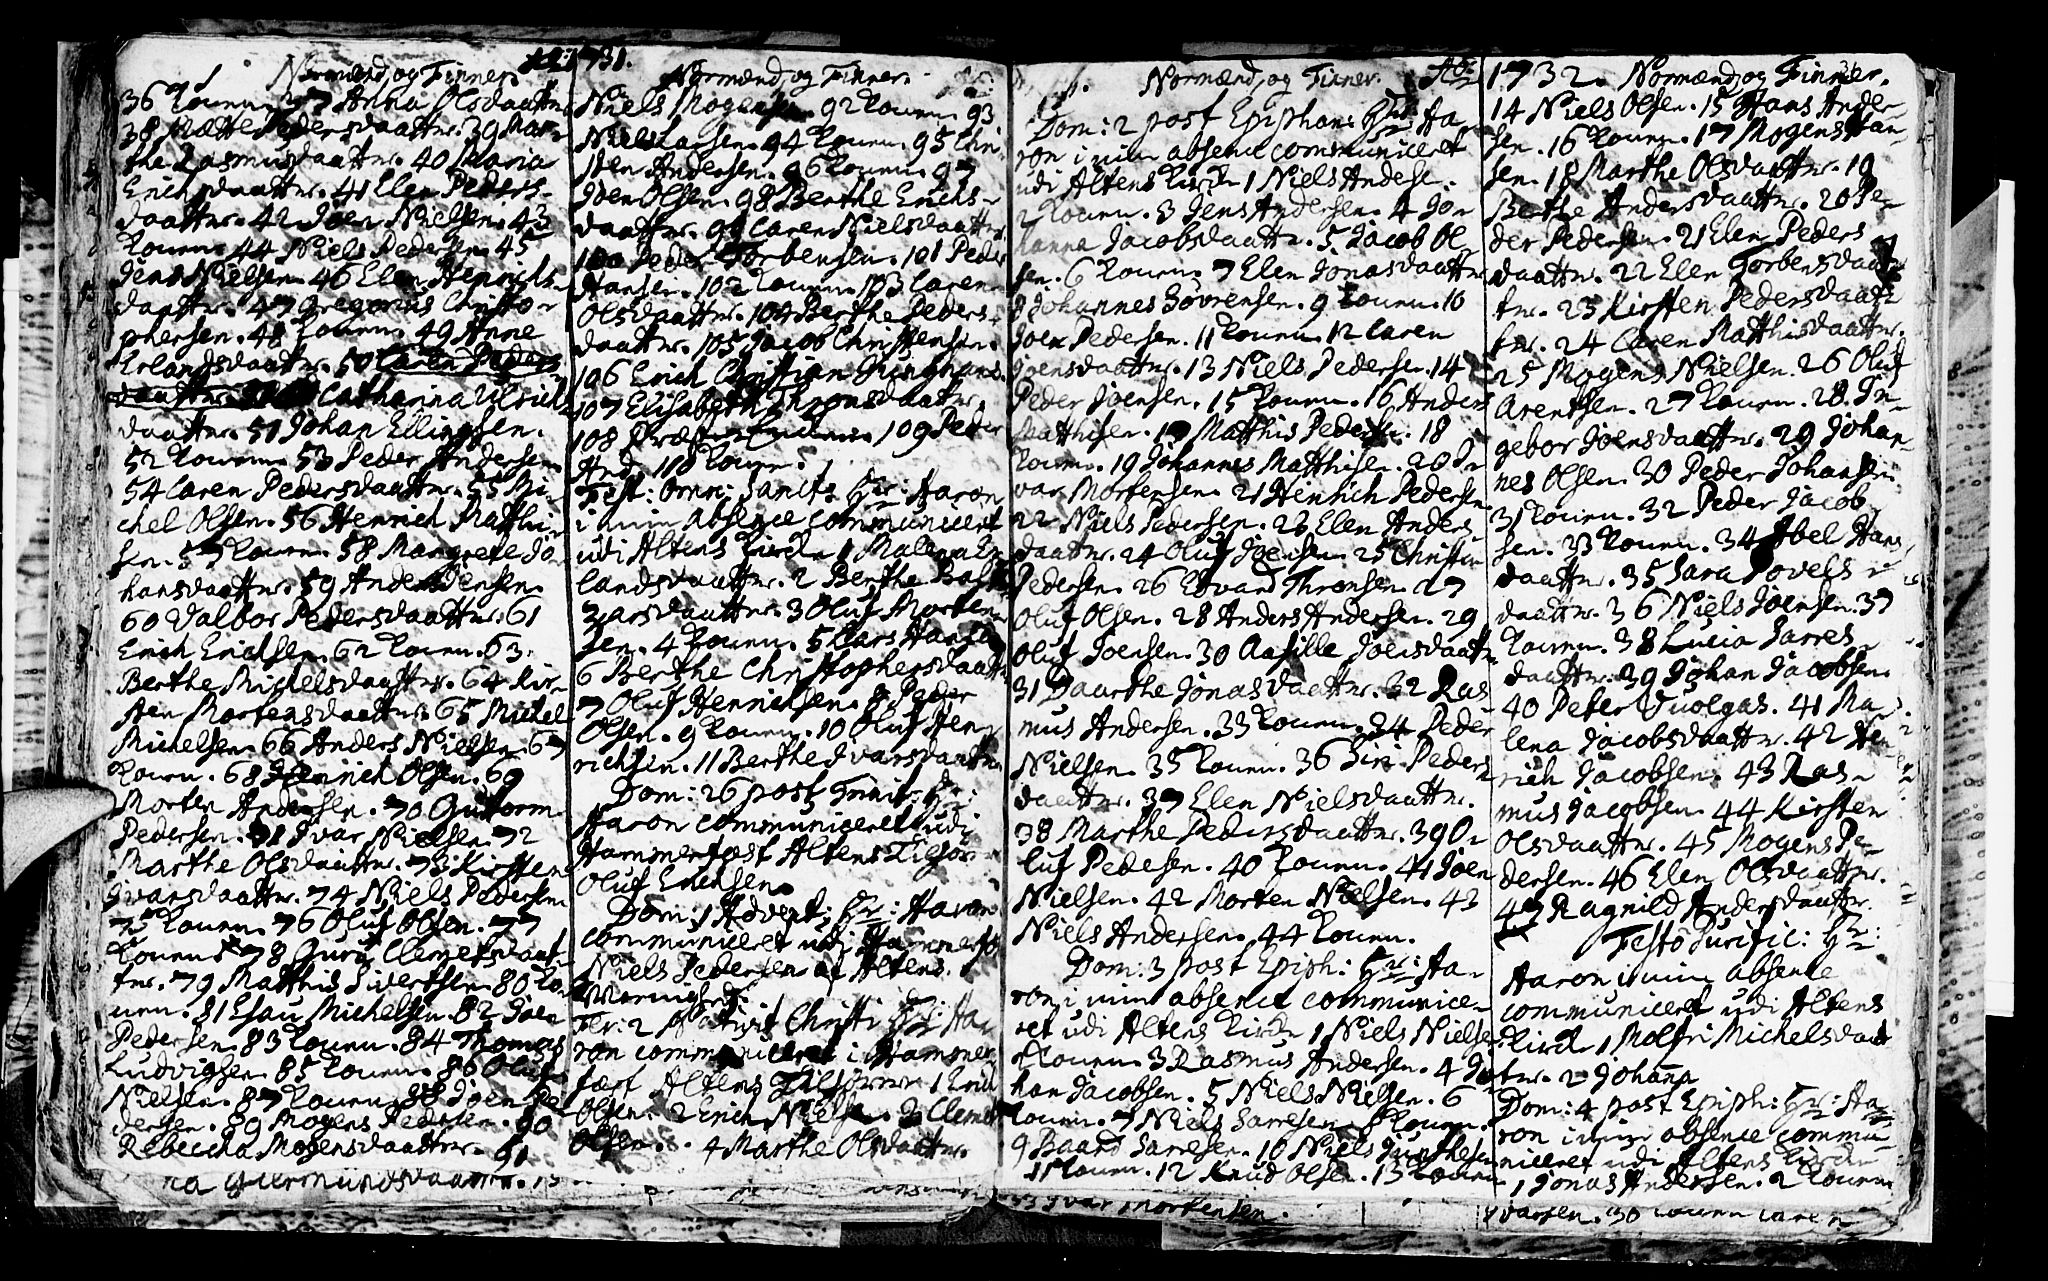 Normænd og Finner. Ao 1731.
36 Konen. 37 Anna Olsdaattr.
38 Mætte Pedersdaattr. 39 Mar-
the Rasmusdaattr. 40 Maria
Erichsdaattr. 41 Elen Peders-
daattr. 42 Joen Nielsen. 43
Konen. 44 Niels Pedersen. 45
Jens Nielsen. 46 Elen Henrichs-
daattr. 47 Gregorius Christo-
phersen. 48 Konen. 49 Anne
Erlandsdaattr. 50 Caren Peders
daattr. Catharina Ulrichs
daattr. 51 Johan Ellingsen.
52 Konen. 53 Peder Andersen.
54 Caren Pedersdaattr. 55 Mi-
chel Olsen. 56 Henrich Matthi-
sen. 57 Konen. 58 Margrete Jo-
hansdaattr. 59 Anders Jensen
60 Valbor Pedersdaattr. 61
Erich Erichsen. 62 Konen. 63.
Berthe Michelsdaattr. 64 Kir-
sten Mortensdaattr. 65 Michel
Michelsen. 66 Anders Nielsen. 67
Konen. 68 Henrich Olsen. 69
Morten Andersen. 70 Guttorm
Pedersen. 71 Ivar Nielsen. 72
Marthe Olsdaattr. 73 Kirsten
Ivarsdaattr. 74 Niels Pedersen
75 Konen. 76 Oluf Olsen. 77
Konen. 78 Guru Clemetsdaat-
tr. 79 Matthis Sivertsen. 80 Ko-
nen. 81 Esau Michelsen. 82 Joen
Pedersen. 83 Konen. 84 Thomas
Ludvigsen. 85 Konen. 86 Oluf
Nielsen. 87 Konen. 88 Joen Pe-
dersen. 89 Mogens Pedersen. 90
Rebeccha Mogensdaattr. 91
Normænd og Finner.
Niels Mogensen. 92 Konen. 93
Niels Larsen. 94 Konen. 95 Chri-
sten Andersen. 96 Konen. 97
Joen Olsen. 98 Berthe Erichs-
daattr. 99 Caren Nielsdaattr.
100 Peder Torbensen. 101 Peder
Hansen. 102 Konen. 103 Caren
Olsdaattr. 104 Berthe Peders-
daattr. 105 Jacob Christensen.
106 Erich Christian Junghans.
107 Elisabeth Thronsdaattr.
108 109 Peder
And: 110 Konen.
Fest: Omn: Sanct: Hr: Aaron
i min absence communiceret
udi Altens Kirche 1 Malena Er
landsdaattr. 2 Berthe Balt
zarsdaattr. 3 Oluf Morten
sen. 4 Konen. 5 Lars Hansen
6 Berthe Christophersdaattr
7 Oluf Henrichsen. 8 Peder
Olsen. 9 Konen. 10 Oluf Hen
richsen. 11 Berthe Ivarsdaattr
Dom: 26 post Trinit: Hr:
Aaron communiceret udi
Hammerfest Altens
Oluf Erichsen.
Dom: 1 Advent: Hr: Aaron
communiceret udi Hammerfe
Niels Pedersen af Altens
Fer: 2 Nativit Christi Hr: Aa
ron communiceret i Hammer
fest Altens 1 Erich
Olsen. 2 Erich Nielsen. 3 Clemet
Olsen. 4 Marthe Olsdaattr.
Normænd og Finner. Ao
Dom: 2 post Epiphan: Hr: Aa
ron i min absence communiceret
udi Altens Kirche 1 Niels Anderse.
2 Konen. 3 Jens Andersen. 4 Jo-
hanna Jacobsdaattr. 5. Jacob Ol
sen. 6 Konen. 7 Elen Jonasdaattr
8 Johannes Sövrensen. 9 Konen. 10
Joen Pedersen. 11 Konen. 12 Caren
Joensdaattr. 13 Niels Pedersen. 14
Peder Joensen. 15 Konen. 16 Anders
Matthisen. 17 Matthis Pedersen. 18
Konen. 19 Johannes Matthisen. 20 I-
var Mortensen. 21 Henrich Pedersen
22 Niels Pedersen. 23 Elen Anders
daattr. 24 Oluf Joensen. 25 Christen
Pedersen. 26 Edvard Thronsen. 27
Oluf Olsen. 28 Anders Andersen. 29
Oluf Joensen. 30 Aasille Joensdaattr
31 Daarthe Jonasdaattr. 32 Ras
mus Andersen. 33 Konen. 34 Peder
Nielsen. 35 Konen. 36 Siri Peders
daattr. 37 Elen Nielsdaattr.
38 Marthe Pedersdaattr. 39 O-
luf Pedersen. 40 Konen. 41 Joen
Nielsen. 42 Morten Nielsen. 43
Niels Andersen. 44 Konen.
Dom: 3 post Epiph: Hr: Aa-
ron i min absence communice-
ret udi Altens Kirche 1 Niels Nielsen
2 Konen. 3 Rasmus Andersen. 4 Jo
han Jacobsen. 5 Niels Nielsen. 6
Konen. 7 Niels Sarresen. 8 Konen.
9 Baard Sarresen. 10 Niels
11 Konen. 12 Knud Olsen. 13 Konen
33 Ivar Mortensen.
1732. Normænd og Finner.
14 Niels Olsen. 15 Hans Ander-
sen. 16 Konen. 17 Mogens Han-
sen. 18 Marthe Olsdaattr. 19
Berthe Andersdaattr. 20 Pe-
der Pedersen. 21 Elen Peders
daattr. 22 Elen Torbensdaat
tr. 23 Kirsten Pedersdaat
tr. 24 Caren Matthisdaattr.
25 Mogens Nielsen. 26 Oluf
Arentsen. 27 Konen. 28 In-
gebor Joensdaattr. 29 Johan-
nes Olsen. 30 Peder Johansen
31 Konen. 32 Peder Jacob
sen. 33 Konen. 34 Abel Hans
daattr. 35 Sara Povels
daattr. 36 Niels Joensen. 37
Konen. 38 Lucia Sarres
daattr. 39 Johan Jacobsen
40 Peter Vuolgas. 41 Ma
lena Jacobsdaattr. 42 Hen
rich Jacobsen. 43 Ras-
mus Jacobsen. 44 Kirsten
Olsdaattr. 45 Mogens Pe-
dersen. 46 Elen Olsdaattr.
47 Ragnild Andersdaattr.
Festo Purific: Hr:
Aaron i min absence
communiceret udi Altens
Kirche 1 Molfri Michelsdaat
tr. 2 Johana
Dom: 4 post Epiph: Hr: Aa
ron i min absence commu-
niceret udi Altens Kirche
1 Jonas Andersen. 2 Konen